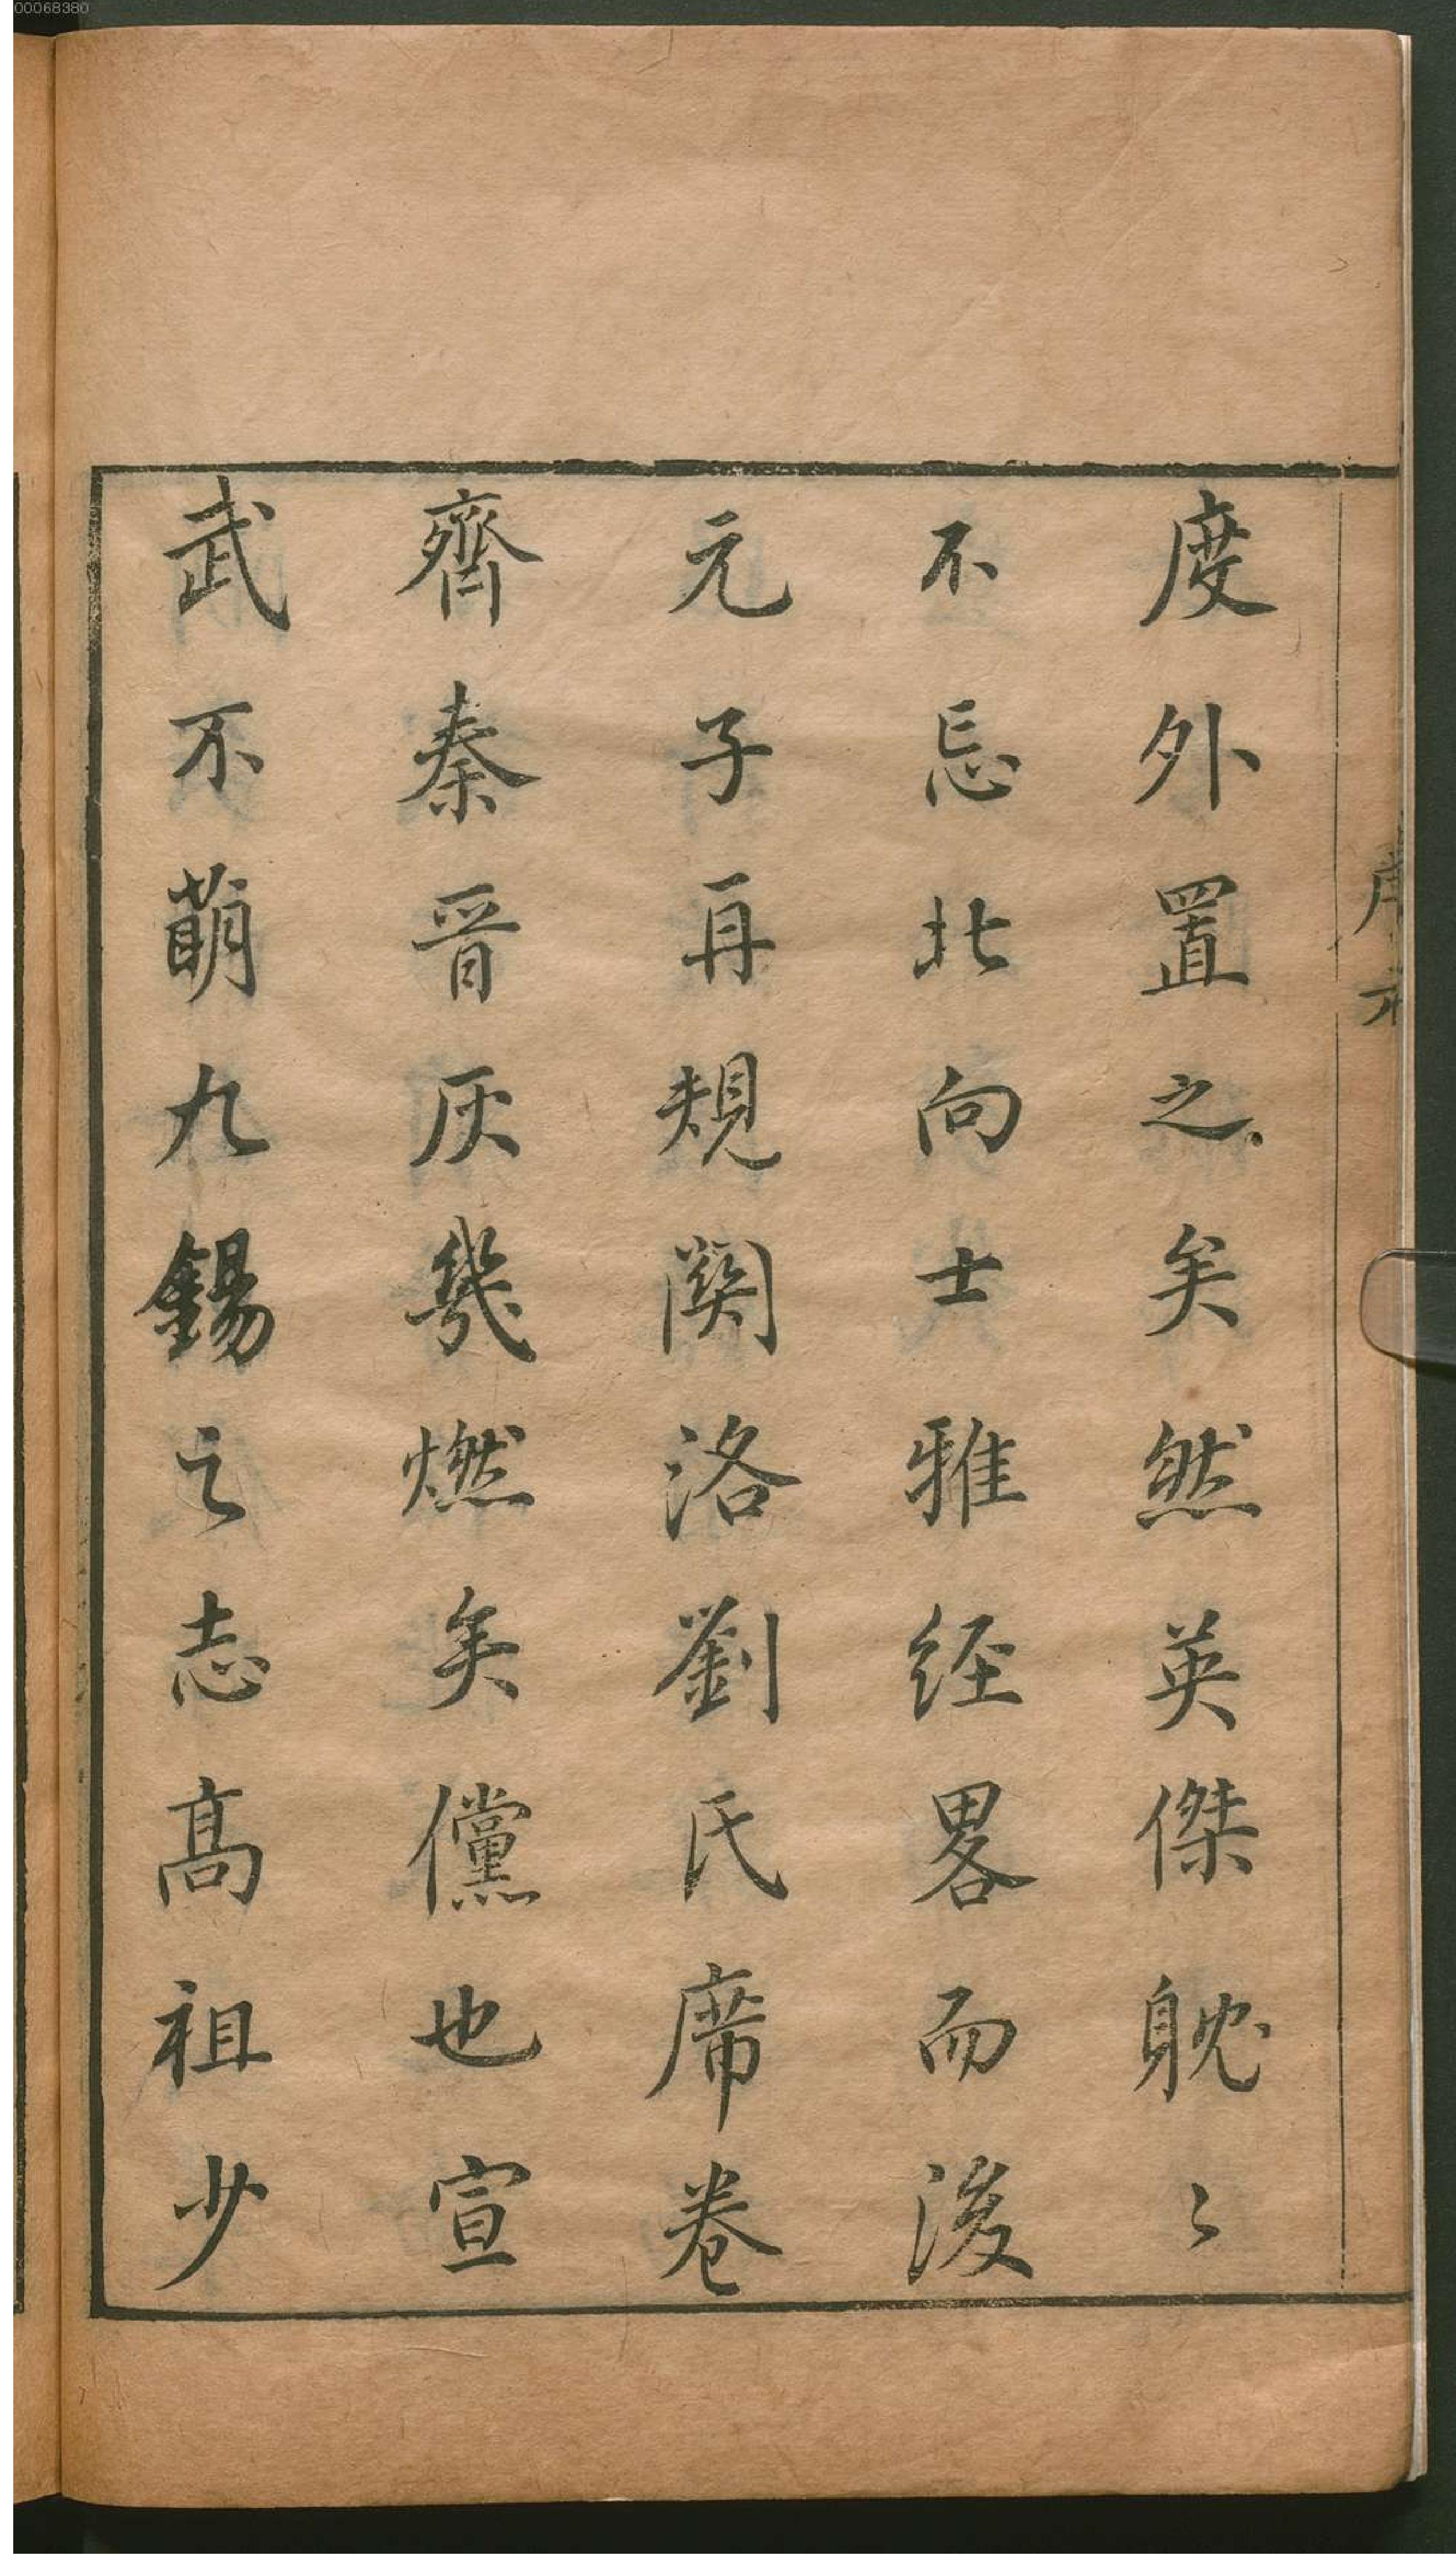 00068380
度外置之矣然英傑耽〻
不忘北向士雅経畧而後
元子再規関洛劉氏席卷
齊秦晉灰幾燃矣儻也宣
武不萌九錫之志高祖少
序